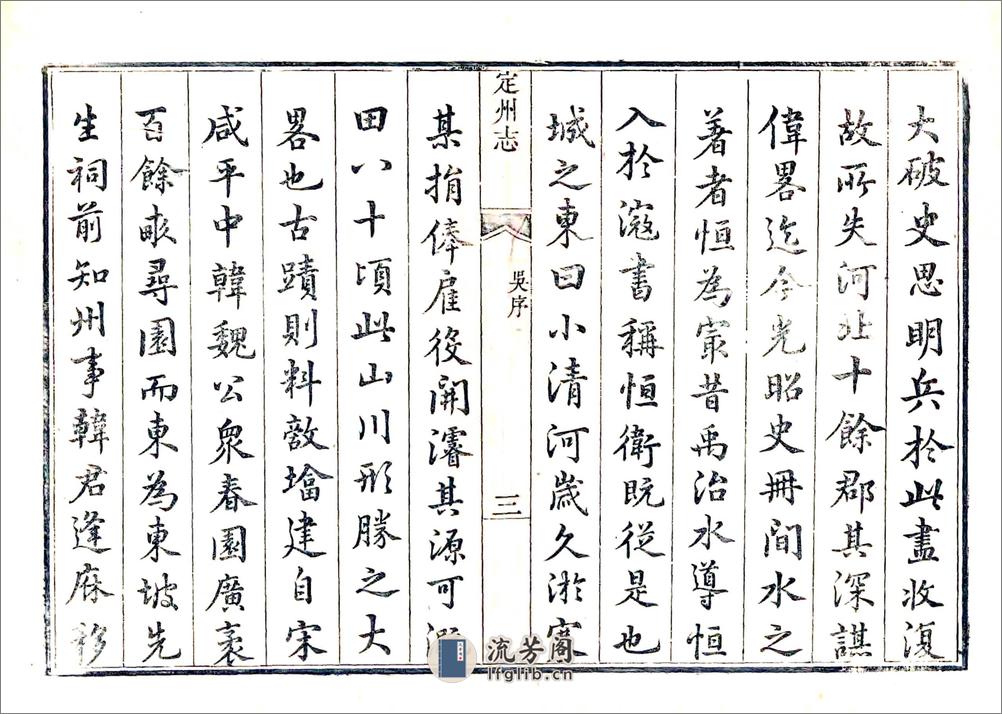 大破史思明兵於此盡收復
故所失河北十餘郡其深謀
偉畧迄今光昭史冊間水之
著者恒為寂昔禹治水導恒
入於滱書稱恒衛既從是也
城之東曰小清河歲久淤
定州志
吳序
三
某捐俸雇役開濬其源可
田八十頃此山川形勝之大
畧也古蹟則料敵墖建自宋
咸平中韓魏公衆春園廣袤
百餘畝尋園而東為東坡先
生祠前知州事韓君逢庥移
流芳阁
lfglib.cn